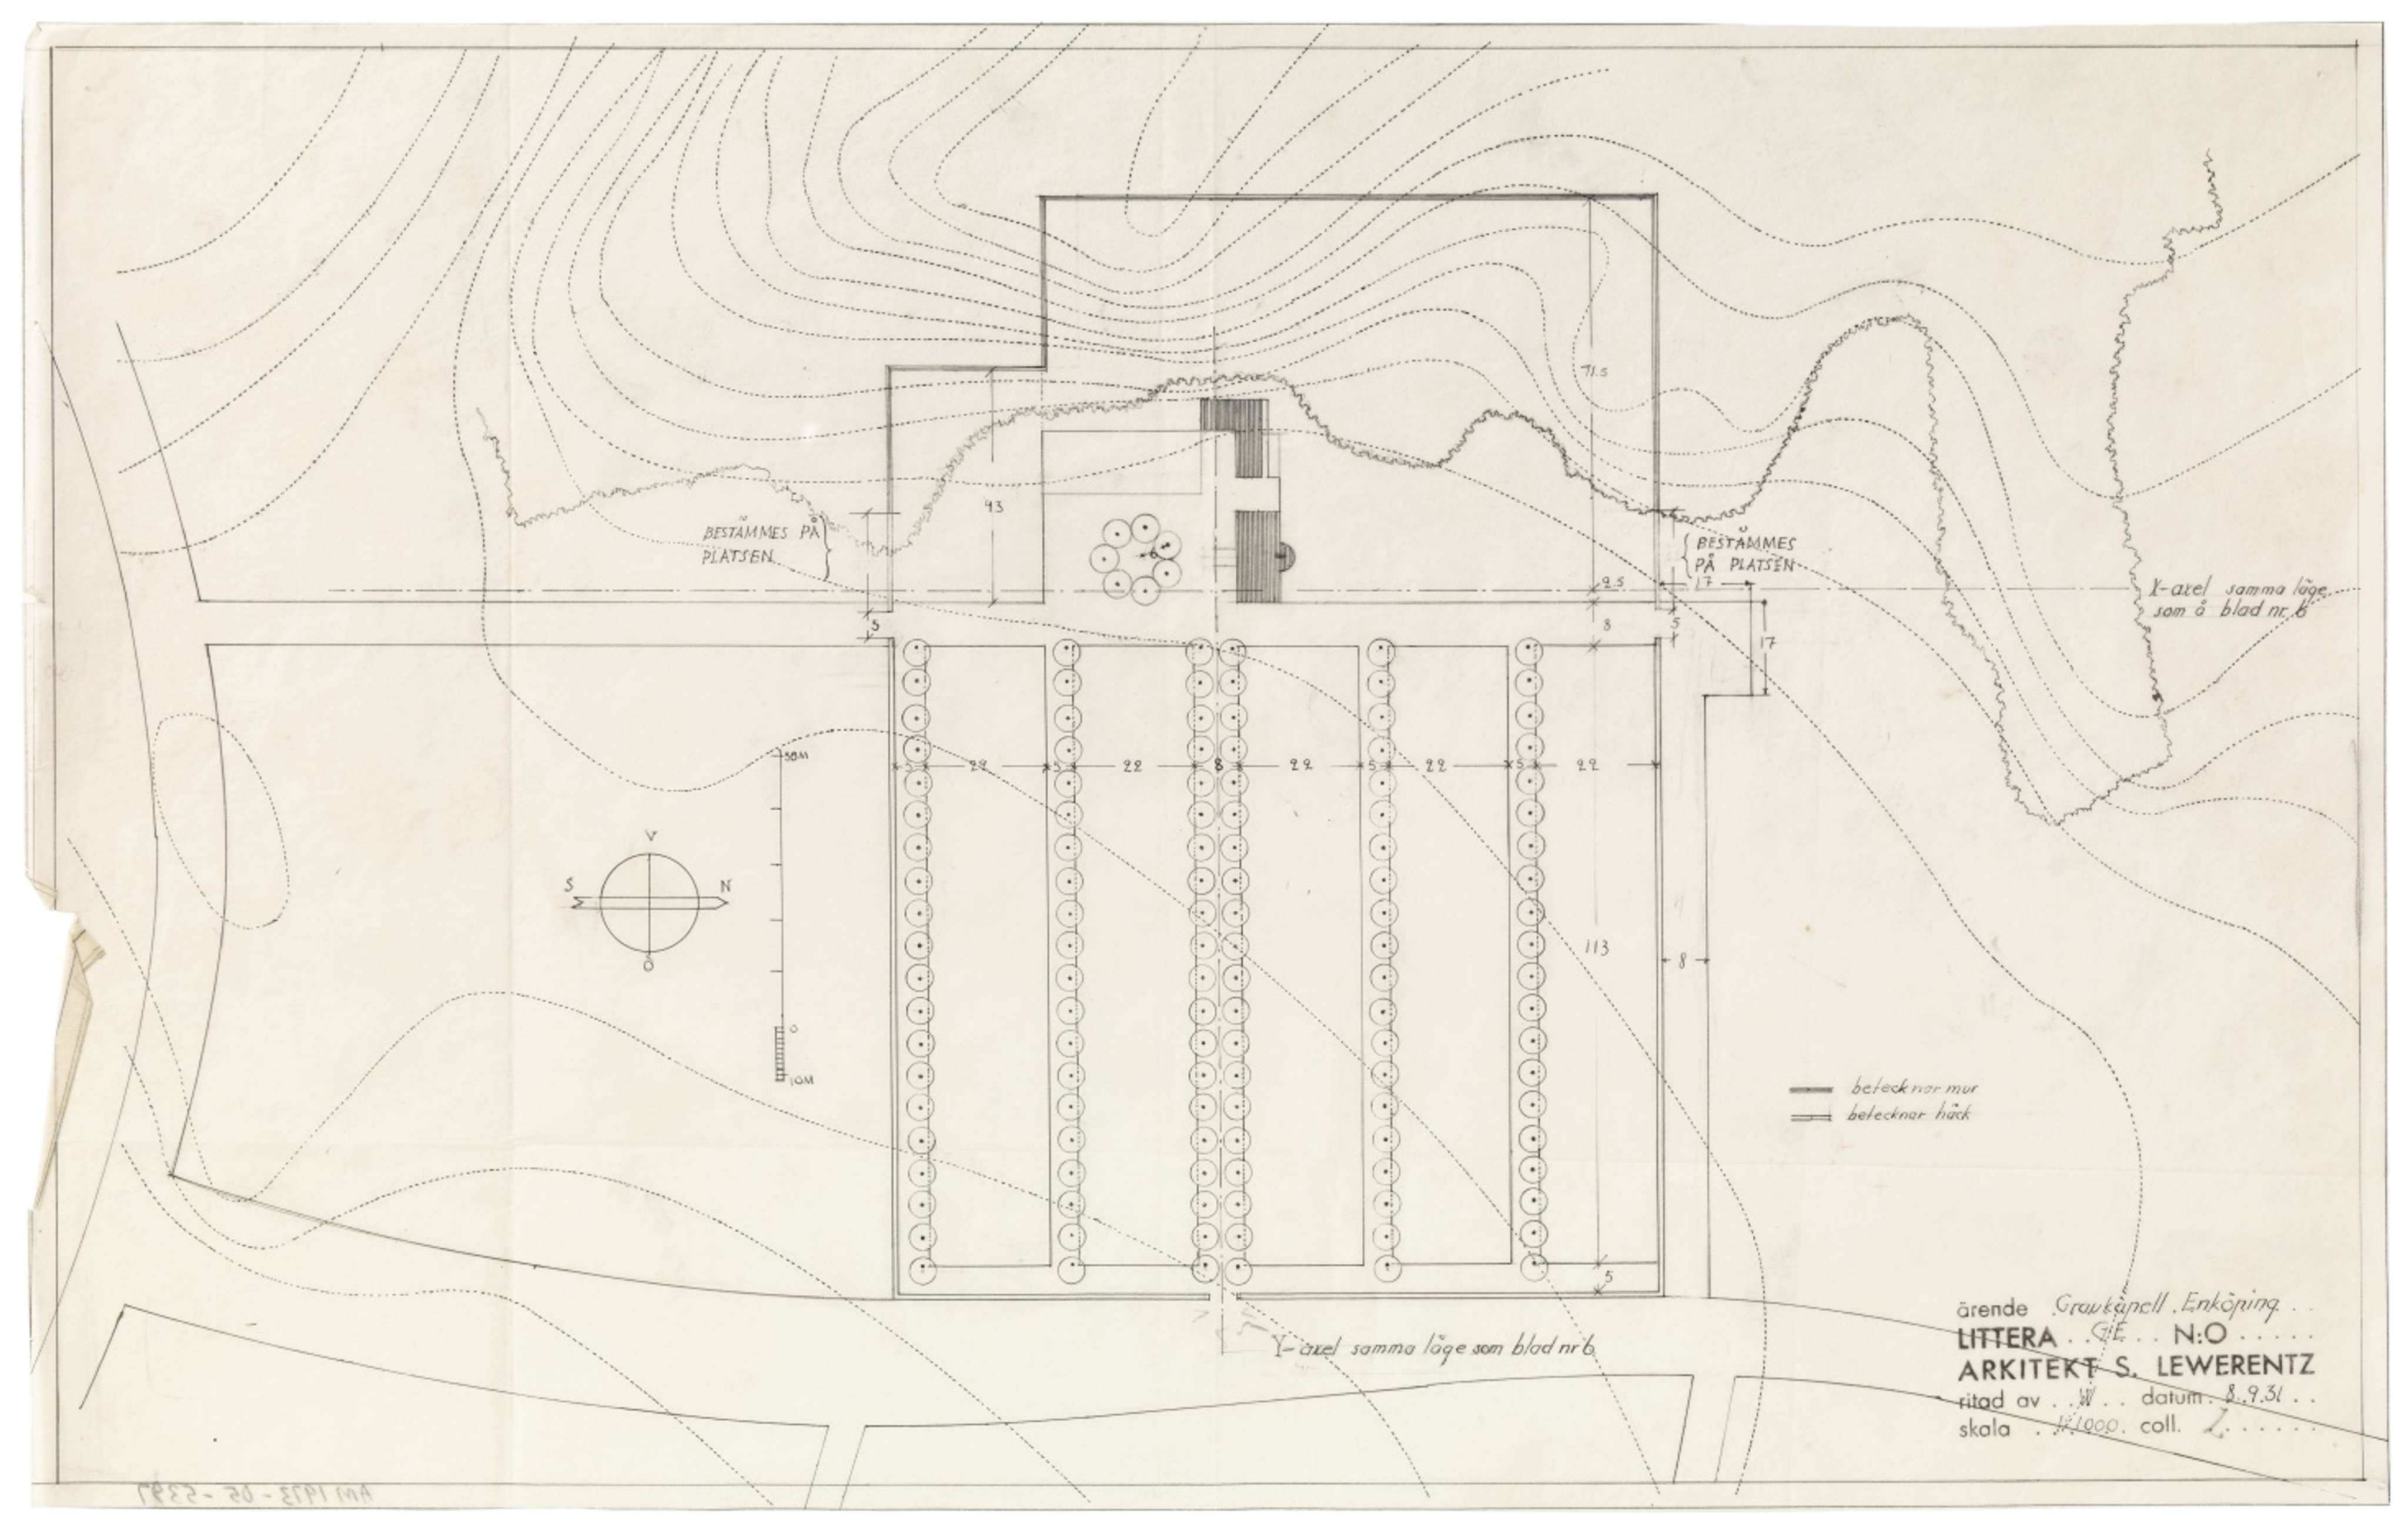 71.5
43
BESTÄMMES PÅ
PLATSEN
BESTÄMMES
PÅ PLATSEN
17
2.5
X-axel samma läge
som å blad nr. 6
5
8
5
17
50M
5 22 5 22 8 22 5 22 5 22
V
S N
Ö
113
8
0
10M
betecknar mur
betecknar häck
5
Y-axel samma läge som blad nr 6
ärende Gravkapell. Enköping
LITTERA GE N:O
ARKITEKT S. LEWERENTZ
ritad av W. datum 8.9.31
skala 1:1000 coll. L
AM 1973-05-5397